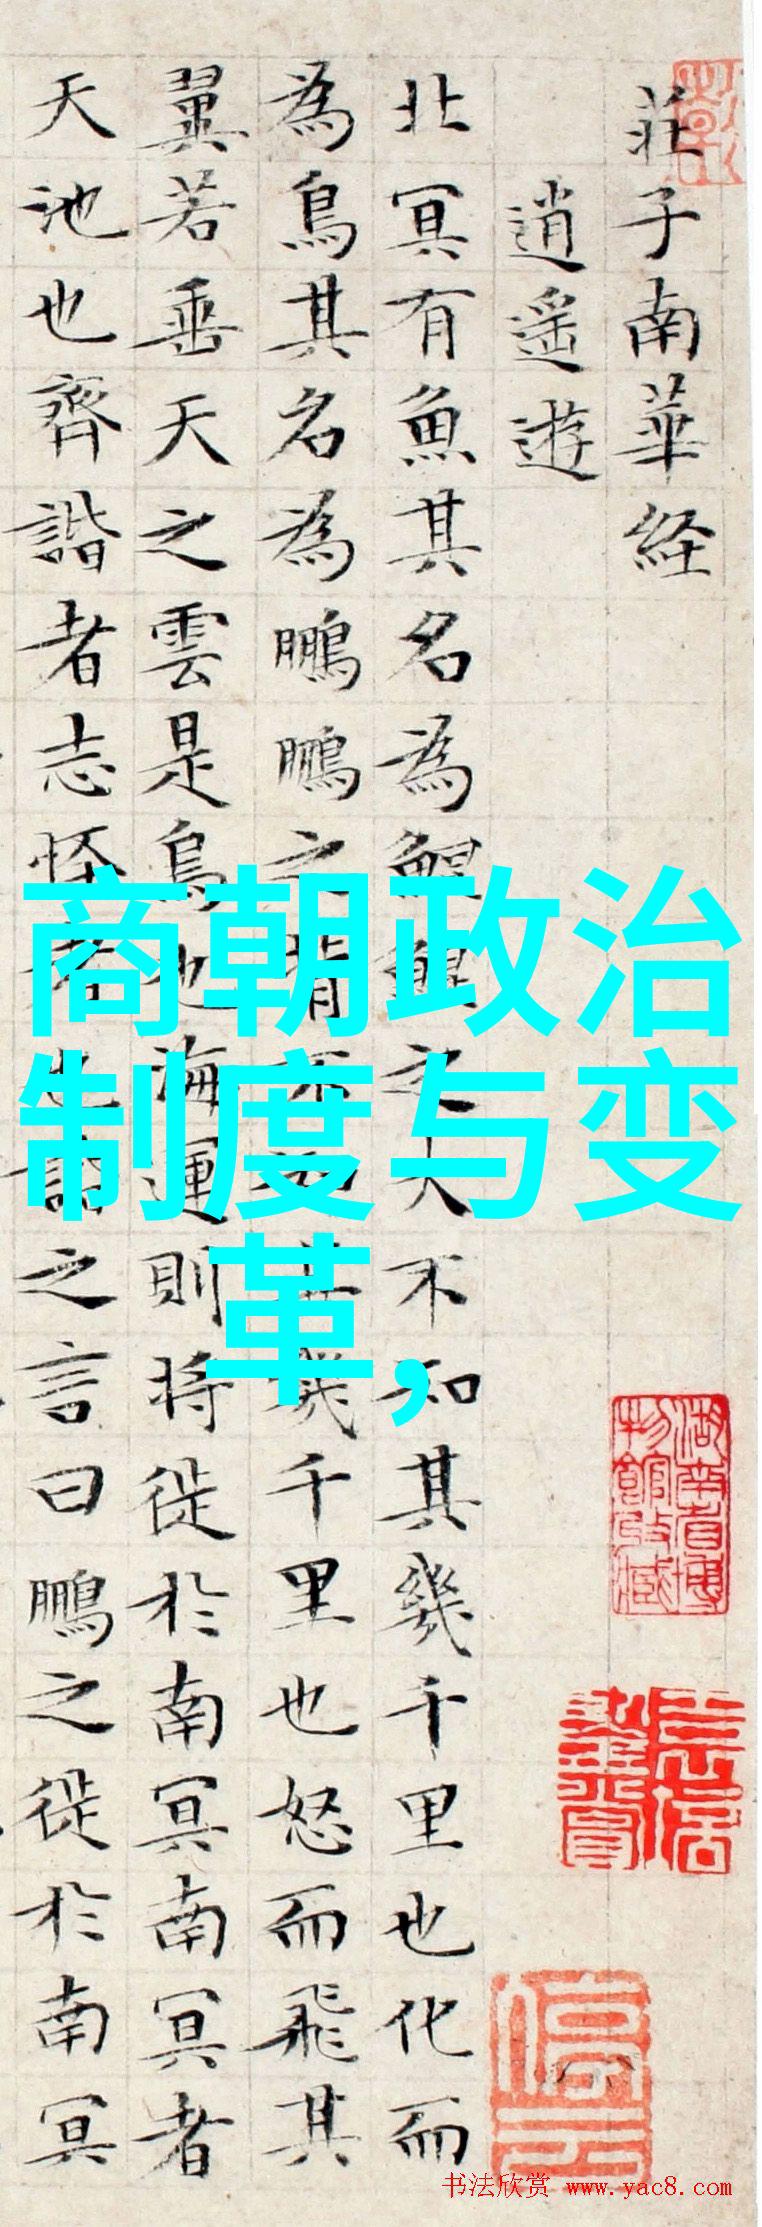 莊子南華経
逍遥遊
北冥有魚其名為鯤鯤之大不知其幾千里也化而
為鳥其名為鵬鵬之背不知其幾千里也怒而飛其
翼若垂天之雲是鳥也海運則将徙於南冥南冥者
天池也齊諧者志怪者也諧之言曰鵬之徙於南冥
商朝政治
制度与变
革,
湖南省博
物館收藏
书法欣赏 www.yac8.com